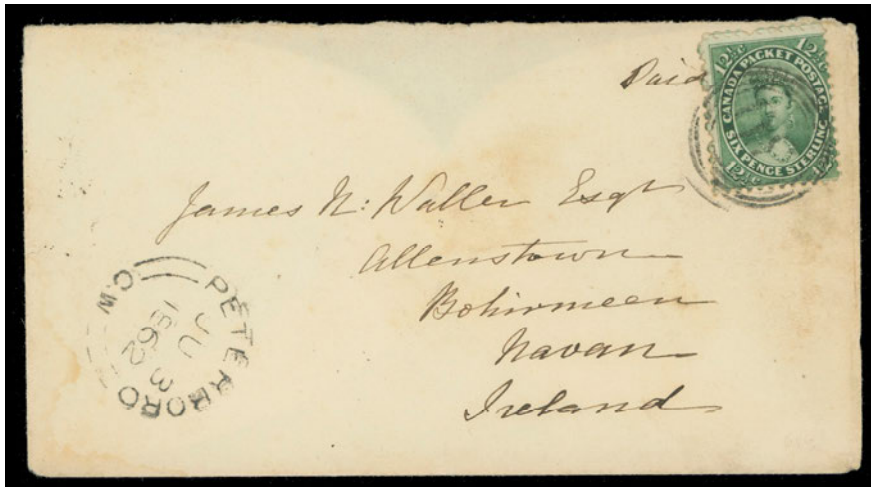 Paid
12½c 12½c
CANADA PACKET POSTAGE
SIX PENCE STERLING
12½c 12½c
James N: Waller Esqr
Allenstown
Bohirmeen
Navan
Ireland
PETERBORO
C.W
JU 3
1862